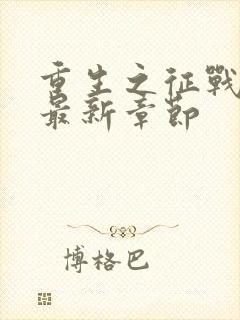 重生之征戰
最新章節
博格巴